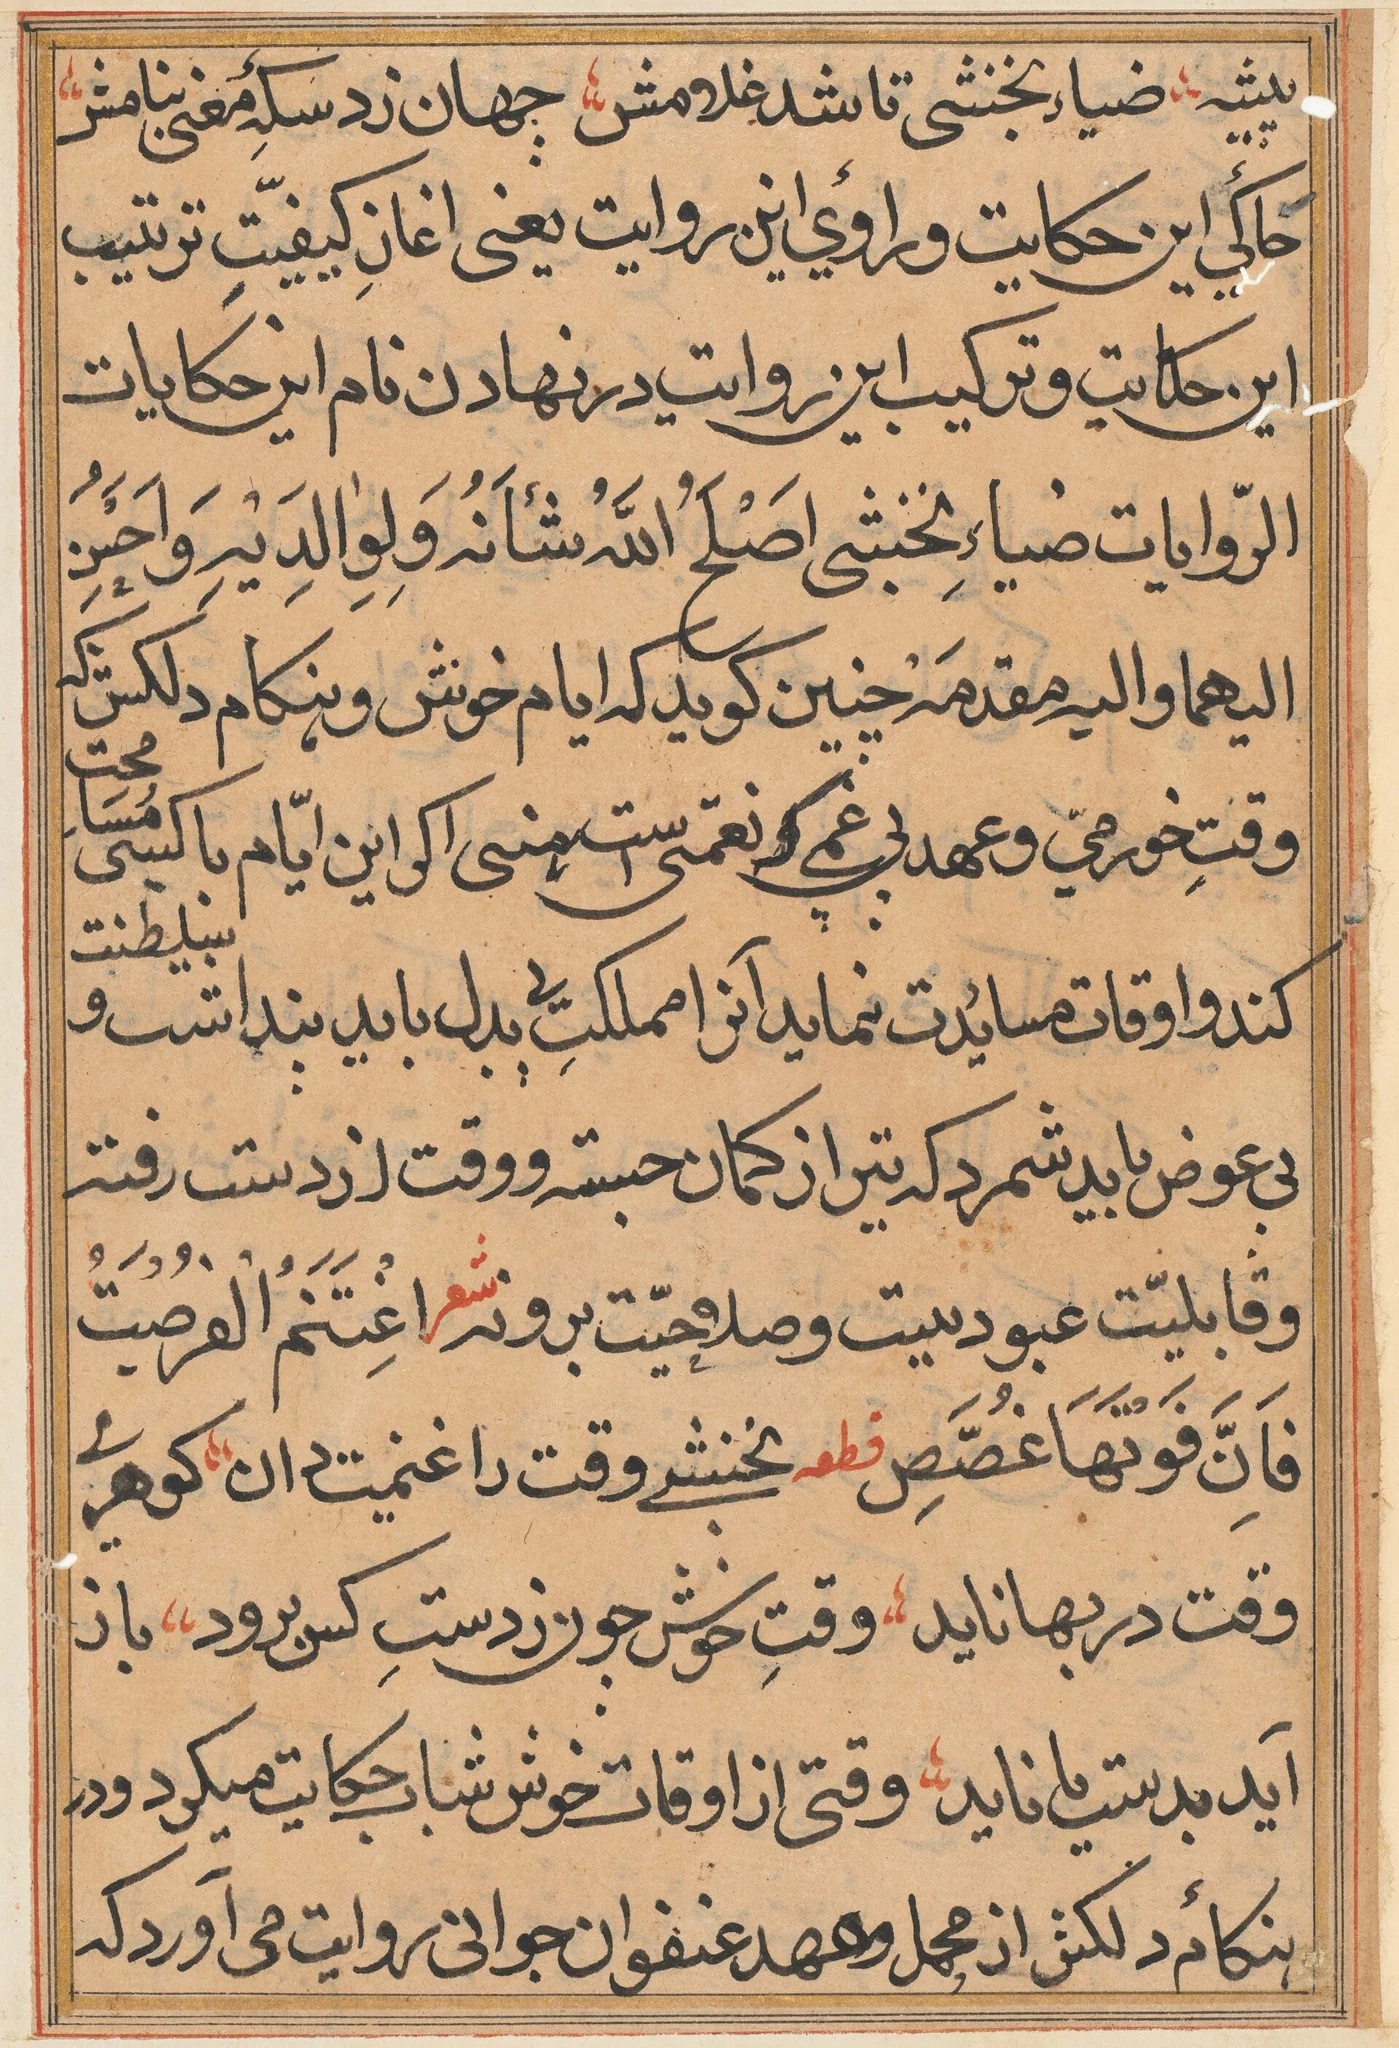 پیشه ضیاء نخشبی تا شد غلامش جهان زد سکهٔ معنی بنامش
حاکیِ این حکایت و راویِ این روایت یعنی اغازِ کیفیّتِ ترتیب
این حکایت و ترکیب این روایت در نهادن نام این حکایات
الرّوایات ضیاءِ نخشبی اَصْلَحَ اللّٰهُ شَأنَهُ وَلِوٰالِدَیْهِ وَاَحْسَنِ
الیهما والیه مقدمَهْ چنین کوید که ایام خوش و هنکام دلکش که
وقتِ خورمیّ و عهد بی غمی که نعمتی است منسی اکر این ایّام با کسی مُسَامحت
کند و اوقات مساعدت نماید آنرا مملکتِ بی بدل باید پنداشت و سلطنت
بی عوض باید شمرد که تیر از کمان جسته و وقت از دست رفته
و قابلیّت عبود نیست و صلاحیّت برو نه شعر اغْتَنَمُ الْفُرْصَتُ
فَاِنَّ فَوْتَهَا غُصَّصِ قطعه نخشبی وقت را غنیمت دان کوهری
وقت در بها ناید وقتِ خوش چون ز دستِ کس برود باز
آید بدست یا ناید وقتی از اوقات خوش شباب حکایت میکرد و در
هنکام دلکش از مجمل و عهد عنفوان جوانی روایت می آورد که